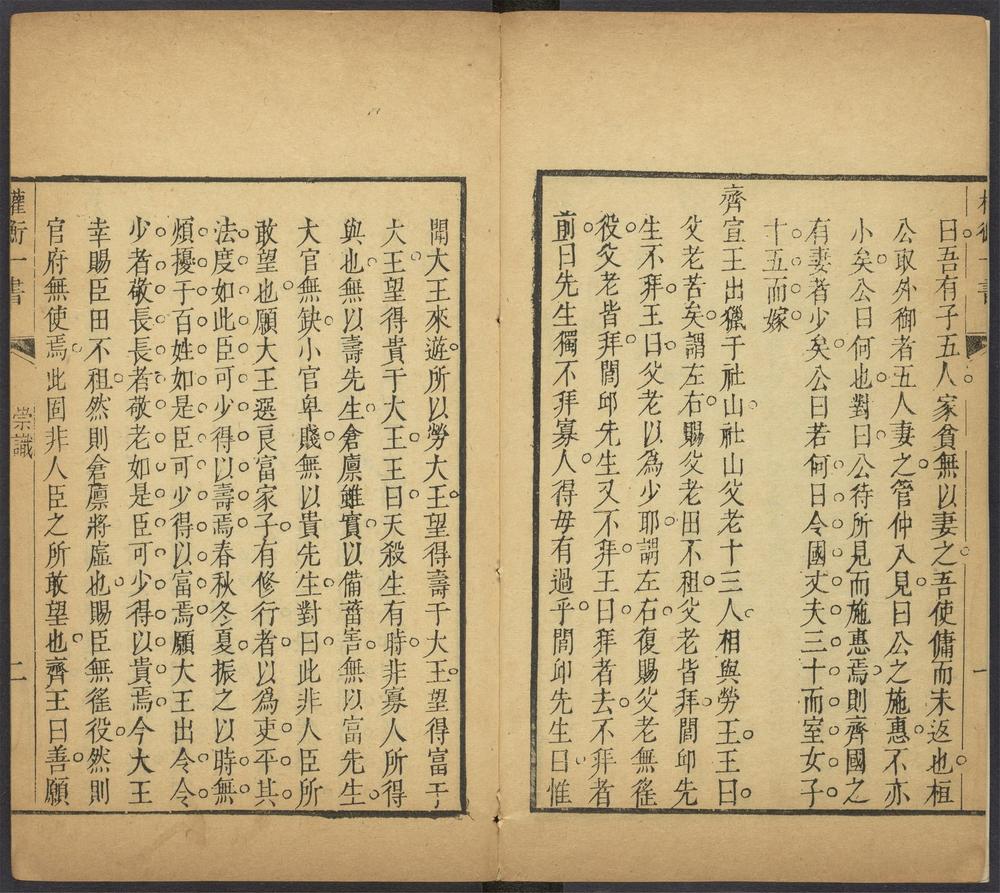 曰吾有子五人家貧無以妻之吾使傭而未返也桓
公取外御者五人妻之管仲入見曰公之施惠不亦
小矣公曰何也對曰公待所見而施惠焉則齊國之
有妻者少矣公曰若何曰令國丈夫三十而室女子
十五而嫁
齊宣王出獵于社山社山父老十三人相與勞王王曰
父老苦矣謂左右賜父老田不租父老皆拜閭邱先
生不拜王曰父老以為少耶謂左右復賜父老無徭
役父老皆拜閭邱先生又不拜王曰拜者去不拜者
前曰先生獨不拜寡人得毋有過乎閭邱先生曰惟
聞大王來遊所以勞大王望得壽于大王望得富于
大王望得貴于大王王曰天殺生有時非寡人所得
與也無以壽先生倉廩雖實以備菑害無以富先生
大官無缺小官卑賤無以貴先生對曰此非人臣所
敢望也願大王選良富家子有修行者以為吏平其
法度如此臣可少得以壽焉春秋冬夏振之以時無
煩擾于百姓如是臣可少得以富焉願大王出令令
少者敬長長者敬老如是臣可少得以貴焉今大王
幸賜臣田不租然則倉廩將虛也賜臣無徭役然則
官府無使焉此固非人臣之所敢望也齊王曰善願
權衡一書
崇識
二